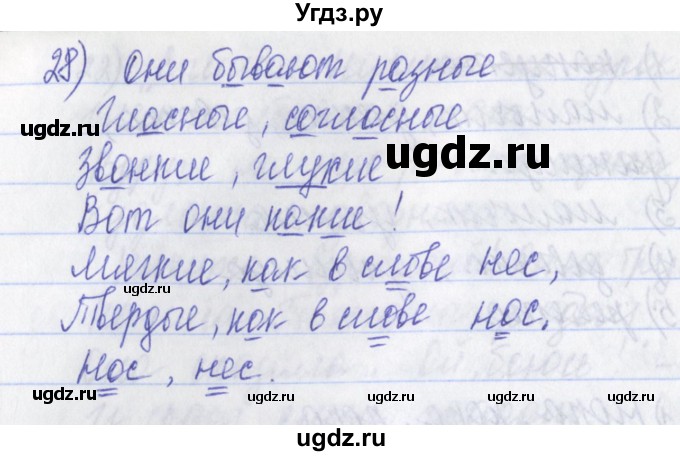 Угдз.ру
28) Они бывают разные
Гласные, согласные
ugdz.ru
Звонкие, глухие
ugdz.ru
ugdz.ru
Вот они какие!
Мягкие, как в слове нес,
ugdz.ru
Твердые, как в слове нос.
ugdz.ru
Нос, нес.
ugdz.ru
ugdz.ru
ugdz.ru